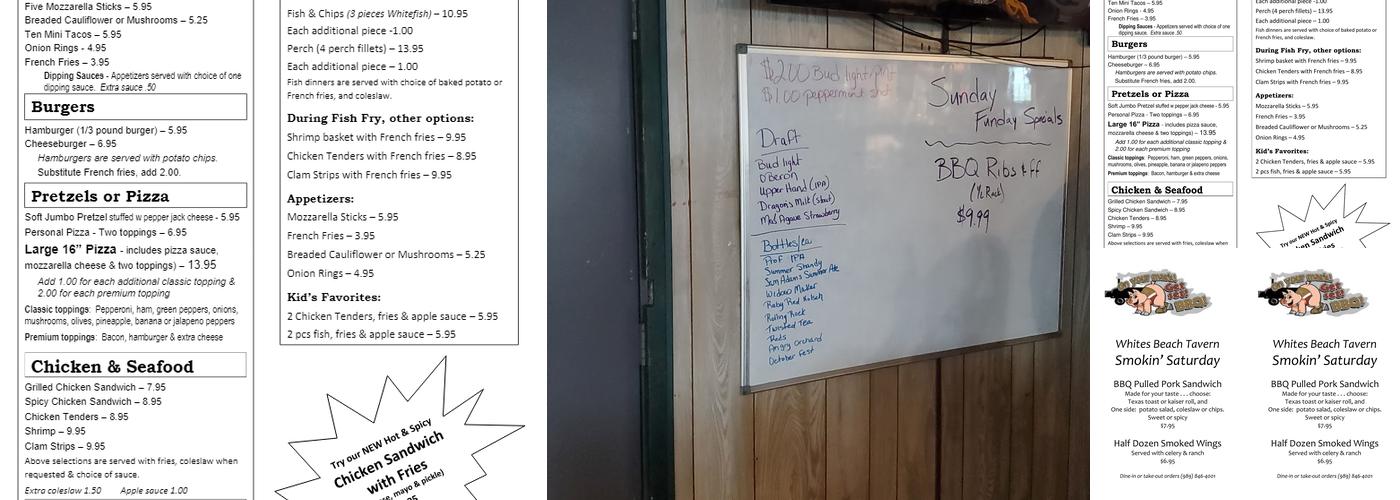 Five Mozzarella Sticks – 5.95
Breaded Cauliflower or Mushrooms – 5.25
Ten Mini Tacos – 5.95
Onion Rings - 4.95
French Fries – 3.95
Dipping Sauces - Appetizers served with choice of one
dipping sauce. Extra sauce .50
Burgers
Hamburger (1/3 pound burger) – 5.95
Cheeseburger – 6.95
Hamburgers are served with potato chips.
Substitute French fries, add 2.00.
Pretzels or Pizza
Soft Jumbo Pretzel stuffed w pepper jack cheese - 5.95
Personal Pizza - Two toppings – 6.95
Large 16” Pizza - includes pizza sauce,
mozzarella cheese & two toppings) – 13.95
Add 1.00 for each additional classic topping &
2.00 for each premium topping
Classic toppings: Pepperoni, ham, green peppers, onions,
mushrooms, olives, pineapple, banana or jalapeno peppers
Premium toppings: Bacon, hamburger & extra cheese
Chicken & Seafood
Grilled Chicken Sandwich – 7.95
Spicy Chicken Sandwich – 8.95
Chicken Tenders – 8.95
Shrimp – 9.95
Clam Strips – 9.95
Above selections are served with fries, coleslaw when
requested & choice of sauce.
Extra coleslaw 1.50 Apple sauce 1.00
Fish & Chips (3 pieces Whitefish) – 10.95
Each additional piece -1.00
Perch (4 perch fillets) – 13.95
Each additional piece – 1.00
Fish dinners are served with choice of baked potato or
French fries, and coleslaw.
During Fish Fry, other options:
Shrimp basket with French fries – 9.95
Chicken Tenders with French fries – 8.95
Clam Strips with French fries – 9.95
Appetizers:
Mozzarella Sticks – 5.95
French Fries – 3.95
Breaded Cauliflower or Mushrooms – 5.25
Onion Rings – 4.95
Kid's Favorites:
2 Chicken Tenders, fries & apple sauce – 5.95
2 pcs fish, fries & apple sauce – 5.95
Try our NEW Hot & Spicy
Chicken Sandwich
with Fries
mayo & pickle)
$2.00 Bud light/pint
$1.00 peppermint shot
Sunday
Funday Specials
Draft
Bud light
O'Beron
Upper Hand (IPA)
Dragon's Milk (stout)
Mas Agave Strawberry
BBQ Ribs + ff
(½ Rack)
$9.99
Bottles/ca
Prof IPA
Summer Shandy
Sam Adams Summer Ale
Widow Maker
Ruby Red Kolsch
Rolling Rock
Twisted Tea
Reds
Angry Orchard
October Fest
Ten Mini Tacos – 5.95
Onion Rings - 4.95
French Fries – 3.95
Dipping Sauces - Appetizers served with choice of one
dipping sauce. Extra sauce .50
Burgers
Hamburger (1/3 pound burger) – 5.95
Cheeseburger – 6.95
Hamburgers are served with potato chips.
Substitute French fries, add 2.00.
Pretzels or Pizza
Soft Jumbo Pretzel stuffed w pepper jack cheese - 5.95
Personal Pizza - Two toppings – 6.95
Large 16” Pizza - includes pizza sauce,
mozzarella cheese & two toppings) – 13.95
Add 1.00 for each additional classic topping &
2.00 for each premium topping
Classic toppings: Pepperoni, ham, green peppers, onions,
mushrooms, olives, pineapple, banana or jalapeno peppers
Premium toppings: Bacon, hamburger & extra cheese
Chicken & Seafood
Grilled Chicken Sandwich – 7.95
Spicy Chicken Sandwich – 8.95
Chicken Tenders – 8.95
Shrimp – 9.95
Clam Strips – 9.95
Above selections are served with fries, coleslaw when
Each additional piece -1.00
Perch (4 perch fillets) – 13.95
Each additional piece – 1.00
Fish dinners are served with choice of baked potato or
French fries, and coleslaw.
During Fish Fry, other options:
Shrimp basket with French fries – 9.95
Chicken Tenders with French fries – 8.95
Clam Strips with French fries – 9.95
Appetizers:
Mozzarella Sticks – 5.95
French Fries – 3.95
Breaded Cauliflower or Mushrooms – 5.25
Onion Rings – 4.95
Kid's Favorites:
2 Chicken Tenders, fries & apple sauce – 5.95
2 pcs fish, fries & apple sauce – 5.95
Try our NEW Hot & Spicy
Sandwich
Whites Beach Tavern
Smokin' Saturday
BBQ Pulled Pork Sandwich
Made for your taste . . . choose:
Texas toast or kaiser roll, and
One side: potato salad, coleslaw or chips.
Sweet or spicy
$7.95
Half Dozen Smoked Wings
Served with celery & ranch
$6.95
Dine-in or take-out orders (989) 846-4021
Whites Beach Tavern
Smokin' Saturday
BBQ Pulled Pork Sandwich
Made for your taste . . . choose:
Texas toast or kaiser roll, and
One side: potato salad, coleslaw or chips.
Sweet or spicy
$7.95
Half Dozen Smoked Wings
Served with celery & ranch
$6.95
Dine-in or take-out orders (989) 846-4021